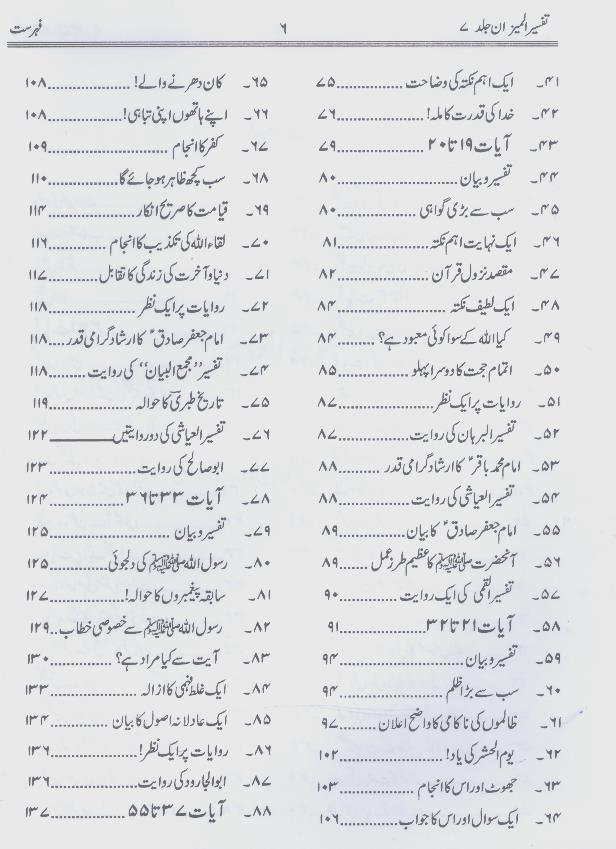 تفسیر المیزان جلد ۷
۶
فہرست
۴۱۔ ایک اہم نکتہ کی وضاحت ................ ۷۵
۴۲۔ خدا کی قدرت کاملہ! ................ ۷۶
۴۳۔ آیات ۱۹ تا ۲۰ ................ ۷۹
۴۴۔ تفسیر و بیان ................ ۸۰
۴۵۔ سب سے بڑی گواہی ................ ۸۰
۴۶۔ ایک نہایت اہم نکتہ ................ ۸۱
۴۷۔ مقصد نزول قرآن ................ ۸۲
۴۸۔ ایک لطیف نکتہ ................ ۸۴
۴۹۔ کیا اللہ کے سوا کوئی معبود ہے؟ ................ ۸۴
۵۰۔ اتمام حجت کا دوسرا پہلو ................ ۸۵
۵۱۔ روایات پر ایک نظر ................ ۸۷
۵۲۔ تفسیر البرہان کی روایت ................ ۸۷
۵۳۔ امام محمد باقرؑ کا ارشاد گرامی قدر ................ ۸۸
۵۴۔ تفسیر العیاشی کی روایت ................ ۸۸
۵۵۔ امام جعفر صادقؑ کا بیان ................ ۸۹
۵۶۔ آنحضرت ﷺ کا عظیم طرز عمل ................ ۸۹
۵۷۔ تفسیر القمی کی ایک روایت ................ ۹۰
۵۸۔ آیات ۲۱ تا ۳۲ ................ ۹۱
۵۹۔ تفسیر و بیان ................ ۹۴
۶۰۔ سب سے بڑا ظلم ................ ۹۴
۶۱۔ ظالموں کی ناکامی کا واضح اعلان ................ ۹۷
۶۲۔ یوم الحشر کی یاد! ................ ۱۰۲
۶۳۔ جھوٹ اور اس کا انجام ................ ۱۰۳
۶۴۔ ایک سوال اور اس کا جواب ................ ۱۰۶
۶۵۔ کان دھرنے والے! ................ ۱۰۸
۶۶۔ اپنے ہاتھوں اپنی تباہی! ................ ۱۰۸
۶۷۔ کفر کا انجام ................ ۱۰۹
۶۸۔ سب کچھ ظاہر ہو جائے گا ................ ۱۱۰
۶۹۔ قیامت کا صریح انکار ................ ۱۱۴
۷۰۔ لقاء اللہ کی تکذیب کا انجام ................ ۱۱۶
۷۱۔ دنیا و آخرت کی زندگی کا تقابل ................ ۱۱۷
۷۲۔ روایات پر ایک نظر ................ ۱۱۸
۷۳۔ امام جعفر صادقؑ کا ارشاد گرامی قدر ................ ۱۱۸
۷۴۔ تفسیر ”مجمع البیان“ کی روایت ................ ۱۱۸
۷۵۔ تاریخ طبری کا حوالہ ................ ۱۱۹
۷۶۔ تفسیر العیاشی کی دو روایتیں ________ ۱۲۲
۷۷۔ ابو صالح کی روایت ................ ۱۲۳
۷۸۔ آیات ۳۳ تا ۳۶ ................ ۱۲۴
۷۹۔ تفسیر و بیان ................ ۱۲۵
۸۰۔ رسول اللہ ﷺ کی دلجوئی ................ ۱۲۵
۸۱۔ سابقہ پیغمبروں کا حوالہ! ................ ۱۲۷
۸۲۔ رسول اللہ ﷺ سے خصوصی خطاب .. ۱۲۹
۸۳۔ آیت سے کیا مراد ہے؟ ................ ۱۳۰
۸۴۔ ایک غلط فہمی کا ازالہ ................ ۱۳۳
۸۵۔ ایک عادلانہ اصول کا بیان ................ ۱۳۴
۸۶۔ روایات پر ایک نظر! ................ ۱۳۶
۸۷۔ ابو الجارود کی روایت ................ ۱۳۶
۸۸۔ آیات ۳۷ تا ۵۵ ................ ۱۳۷